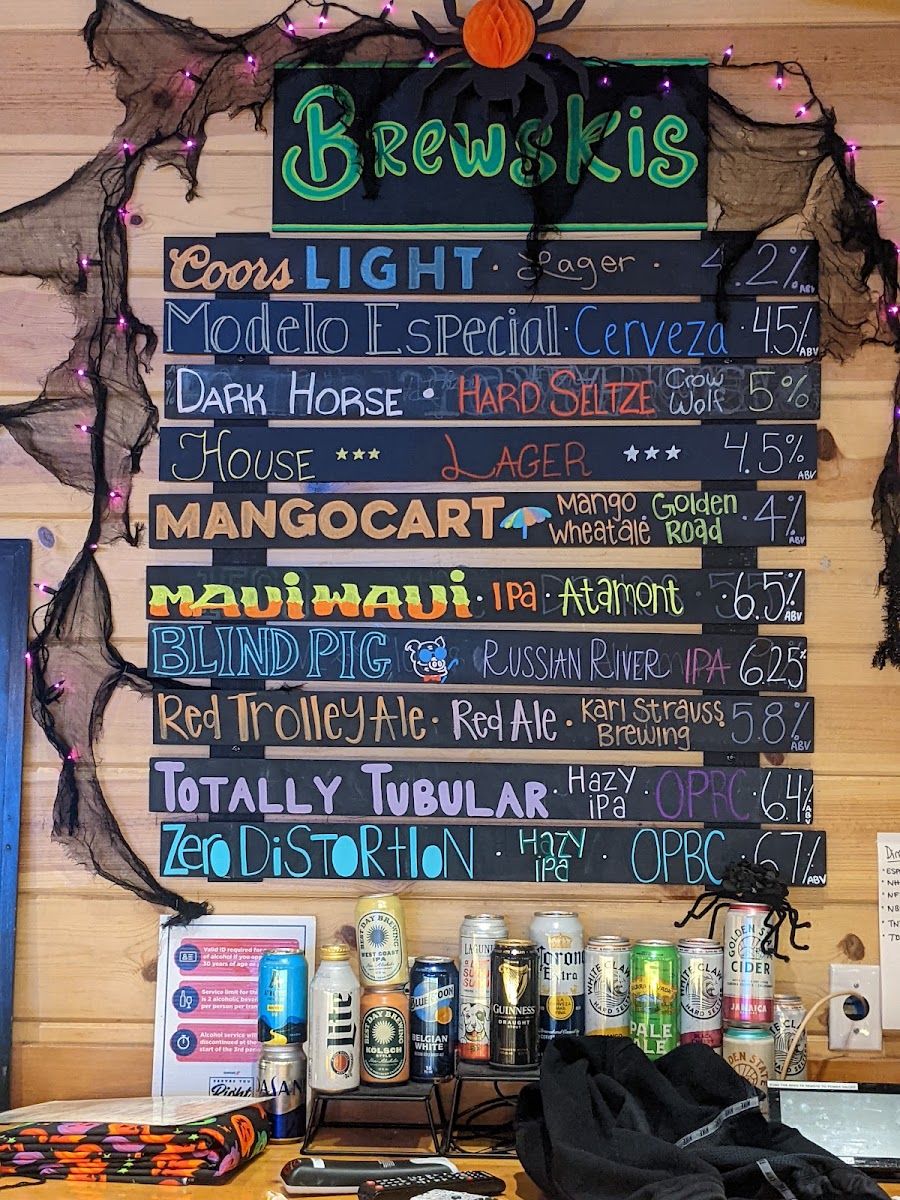 BREWSKIS
Coors LIGHT · Lager · 4.2% ABV
Modelo Especial · Cerveza · 4.5% ABV
DARK HORSE · HARD SELTZE Crow Wolf 5%
HOUSE *** LAGER *** 4.5% ABV
MANGOCART Mango Wheat ale Golden Road · 4% ABV
MAUI WAUI · IPA · Atamont · 6.5% ABV
BLIND PIG RUSSIAN RIVER IPA 6.25%
Red Trolley Ale · Red Ale · Karl Strauss Brewing 5.8% ABV
TOTALLY TUBULAR · HAZY iPA · OPBC · 6.4% ABV
Zero DiSTORtION · HAZY ipa · OPBC · 6.7% ABV
Valid ID required for
of alcohol if you
30 years of age
Service limit for
is 2 alcoholic
per person per
Alcohol service
discontinued at the
start of the 3rd
Right
lite
BEST DAY BREWING
WEST COAST
IPA
BEST DAY BREWING
KÖLSCH
STYLE
BLUE MOON
BELGIAN
WHITE
GUINNESS
DRAUGHT
Corona
Extra
WHITE CLAW
HARD SELTZER
PALE
ALE
WHITE CLAW
HARD SELTZER
GOLDEN STATE
CIDER
JAMAICA
GOLDEN STATE